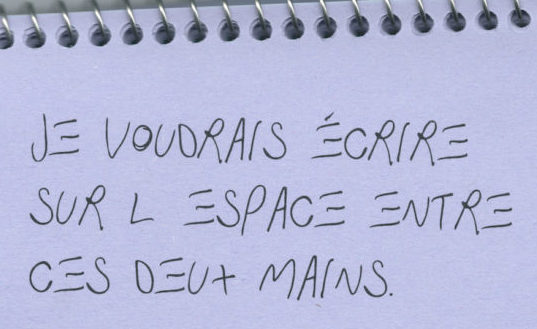 JE VOUDRAIS ÉCRIRE
SUR L ESPACE ENTRE
CES DEUX MAINS.